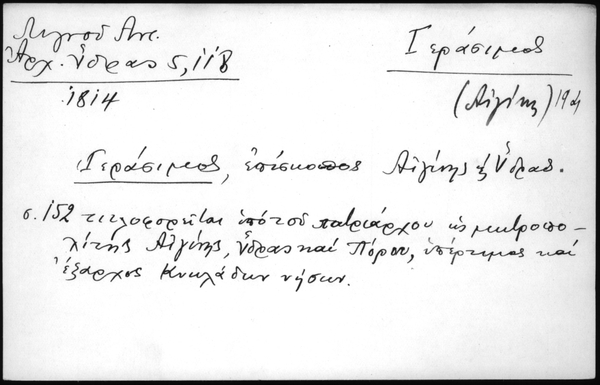 Λιγνοῦ Ἀντ.
Ἀρχ. Ὕδρας 5, 118
1814
Γεράσιμος
(Αἰγίνης) 19
Γεράσιμος, ἐπίσκοπος Αἰγίνης & Ὕδρας.
σ. 152 τιτλοφορεῖται ὑπὸ τοῦ πατριάρχου ὡς μητροπο-
λίτης Αἰγίνης, Ὕδρας καὶ Πόρου, ὑπέρτιμος καὶ
ἔξαρχος Κυκλάδων νήσων.